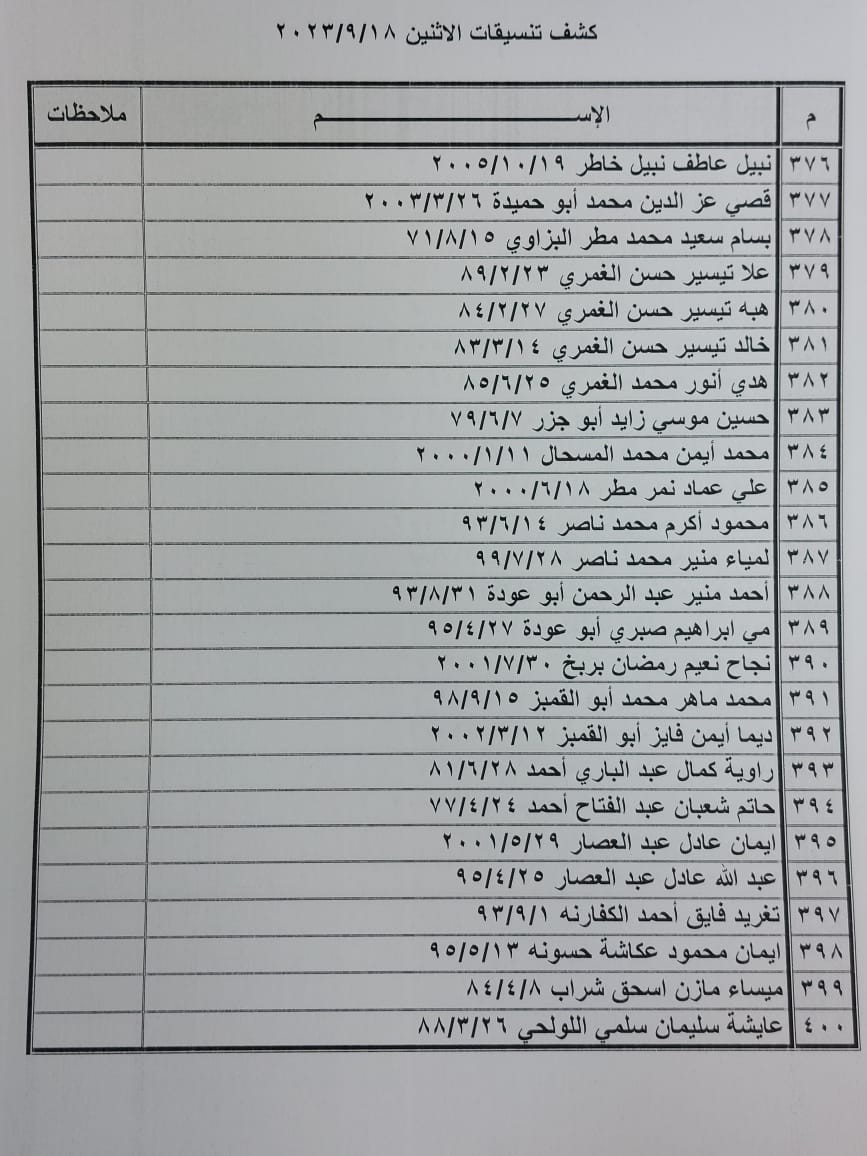 كشف تنسيقات الاثنين ٢٠٢٣/٩/١٨
م الإســـــــم ملاحظات
٣٧٦ نبيل عاطف نبيل خاطر ٢٠٠٥/١٠/١٩
٣٧٧ قصي عز الدين محمد أبو حميدة ٢٠٠٣/٣/٢٦
٣٧٨ بسام سعيد محمد مطر البزاوي ٧١/٨/١٥
٣٧٩ علا تيسير حسن الغمري ٨٩/٢/٢٣
٣٨٠ هبه تيسير حسن الغمري ٨٤/٢/٢٧
٣٨١ خالد تيسير حسن الغمري ٨٣/٣/١٤
٣٨٢ هدي أنور محمد الغمري ٨٥/٦/٢٥
٣٨٣ حسين موسي زايد أبو جزر ٧٩/٦/٧
٣٨٤ محمد أيمن محمد المسحال ٢٠٠٠/١/١١
٣٨٥ علي عماد نمر مطر ٢٠٠٠/٦/١٨
٣٨٦ محمود أكرم محمد ناصر ٩٣/٦/١٤
٣٨٧ لمياء منير محمد ناصر ٩٩/٧/٢٨
٣٨٨ أحمد منير عبد الرحمن أبو عودة ٩٣/٨/٣١
٣٨٩ مي ابراهيم صبري أبو عودة ٩٥/٤/٢٧
٣٩٠ نجاح نعيم رمضان بربخ ٢٠٠١/٧/٣٠
٣٩١ محمد ماهر محمد أبو القمبز ٩٨/٩/١٥
٣٩٢ ديما أيمن فايز أبو القمبز ٢٠٠٢/٣/١٢
٣٩٣ راوية كمال عبد الباري أحمد ٨١/٦/٢٨
٣٩٤ حاتم شعبان عبد الفتاح أحمد ٧٧/٤/٢٤
٣٩٥ ايمان عادل عبد العصار ٢٠٠١/٥/٢٩
٣٩٦ عبد الله عادل عبد العصار ٩٥/٤/٢٥
٣٩٧ تغريد فايق أحمد الكفارنه ٩٣/٩/١
٣٩٨ ايمان محمود عكاشة حسونه ٩٥/٥/١٣
٣٩٩ ميساء مازن اسحق شراب ٨٤/٤/٨
٤٠٠ عايشة سليمان سلمي اللولحي ٨٨/٣/٢٦